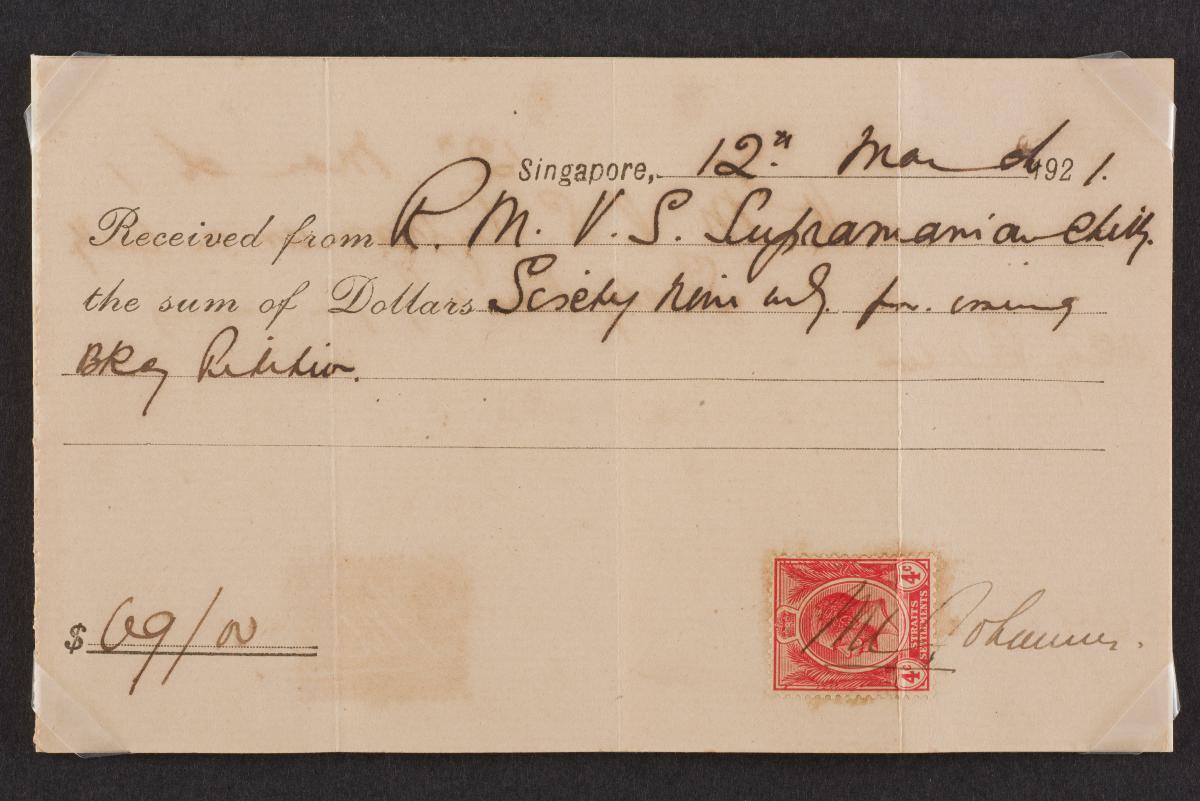 Singapore, 12th March 1921.
Received from R. M. V. S. Supramanian Chitty.
the sum of Dollars Sixety Nine only. for. issuing
BKcy Petition.
$ 69/00
4c 4c
STRAITS SETTLEMENTS
Johannes.